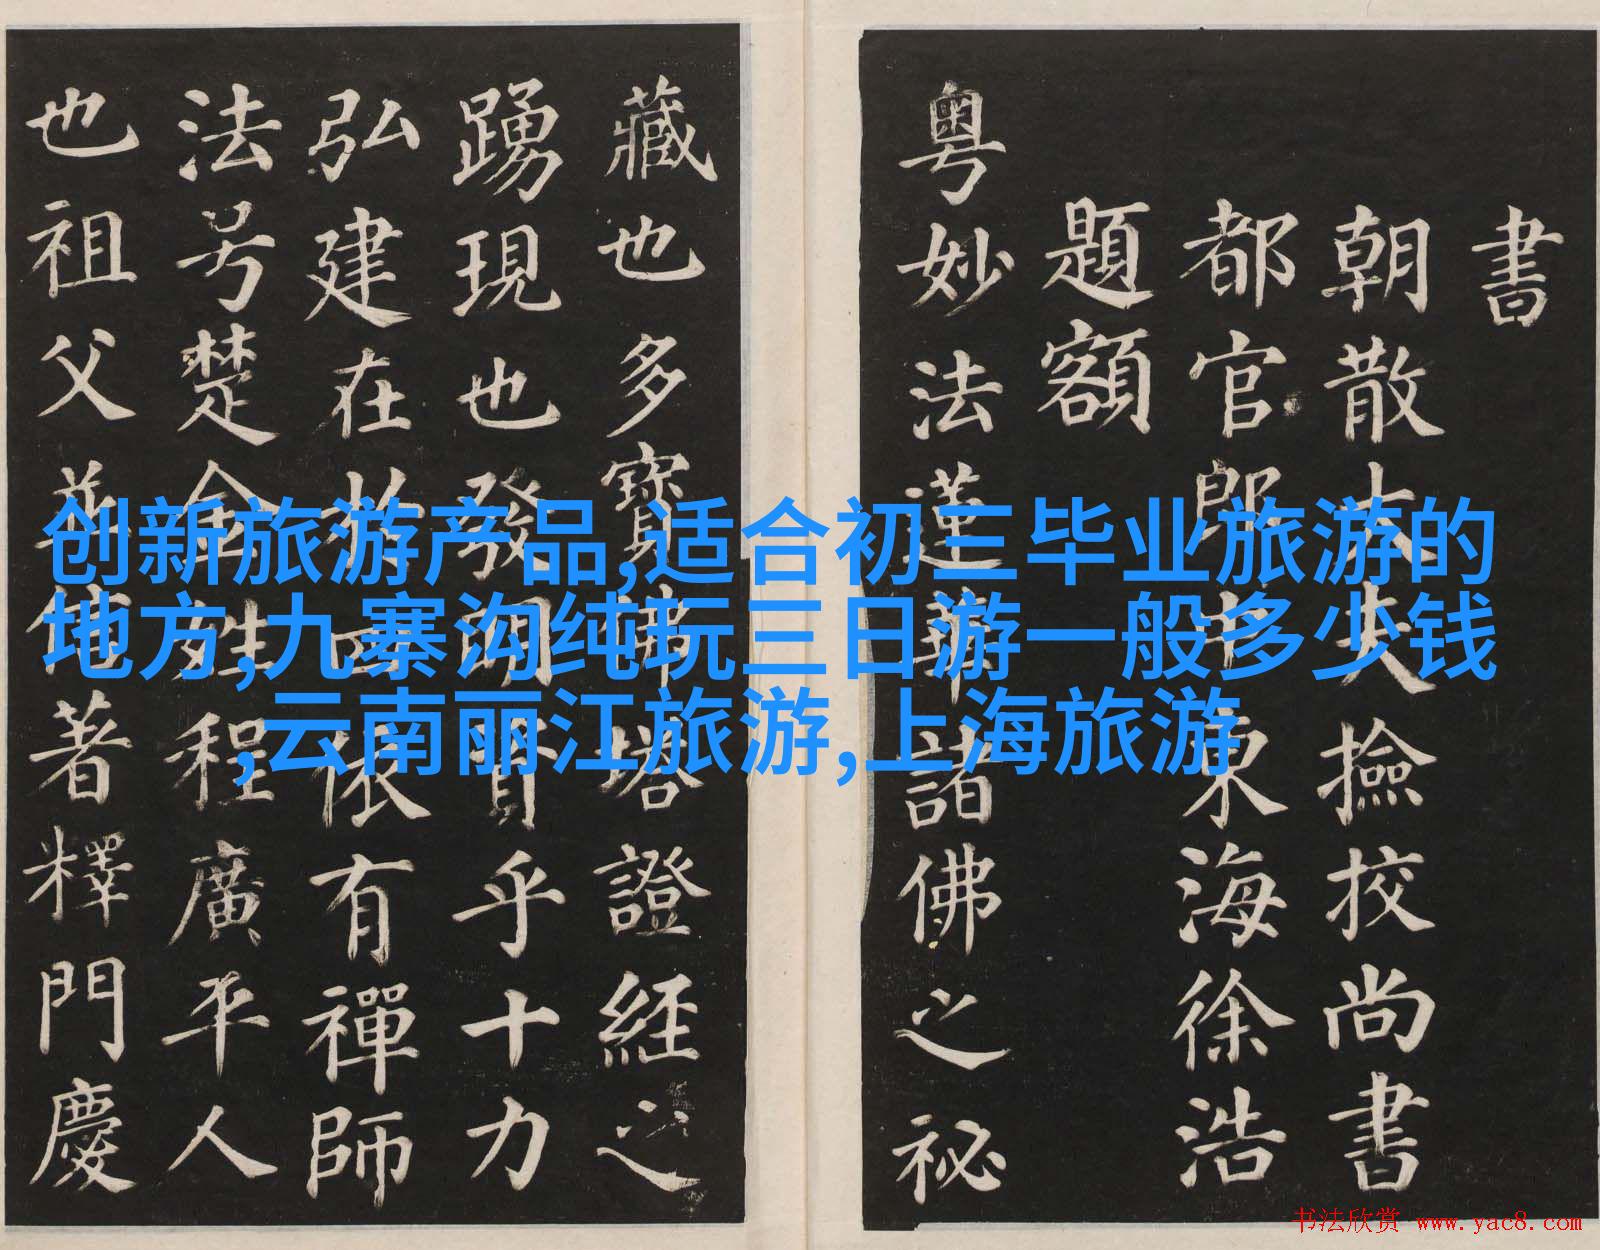 创新旅游产品,适合初三毕业旅游的
地方,九寨沟纯玩三日游一般多少钱
,云南丽江旅游,上海旅游
書
朝散大夫撿挍尚書
都官郎中東海徐浩
題額
粤妙法蓮華諸佛之秘
藏也多寶佛塔證經之
踴現也發明資乎十力
弘建在於四依有禪師
法号楚金姓程廣平人
也祖父並信著釋門慶
书法欣赏 www.yac8.com